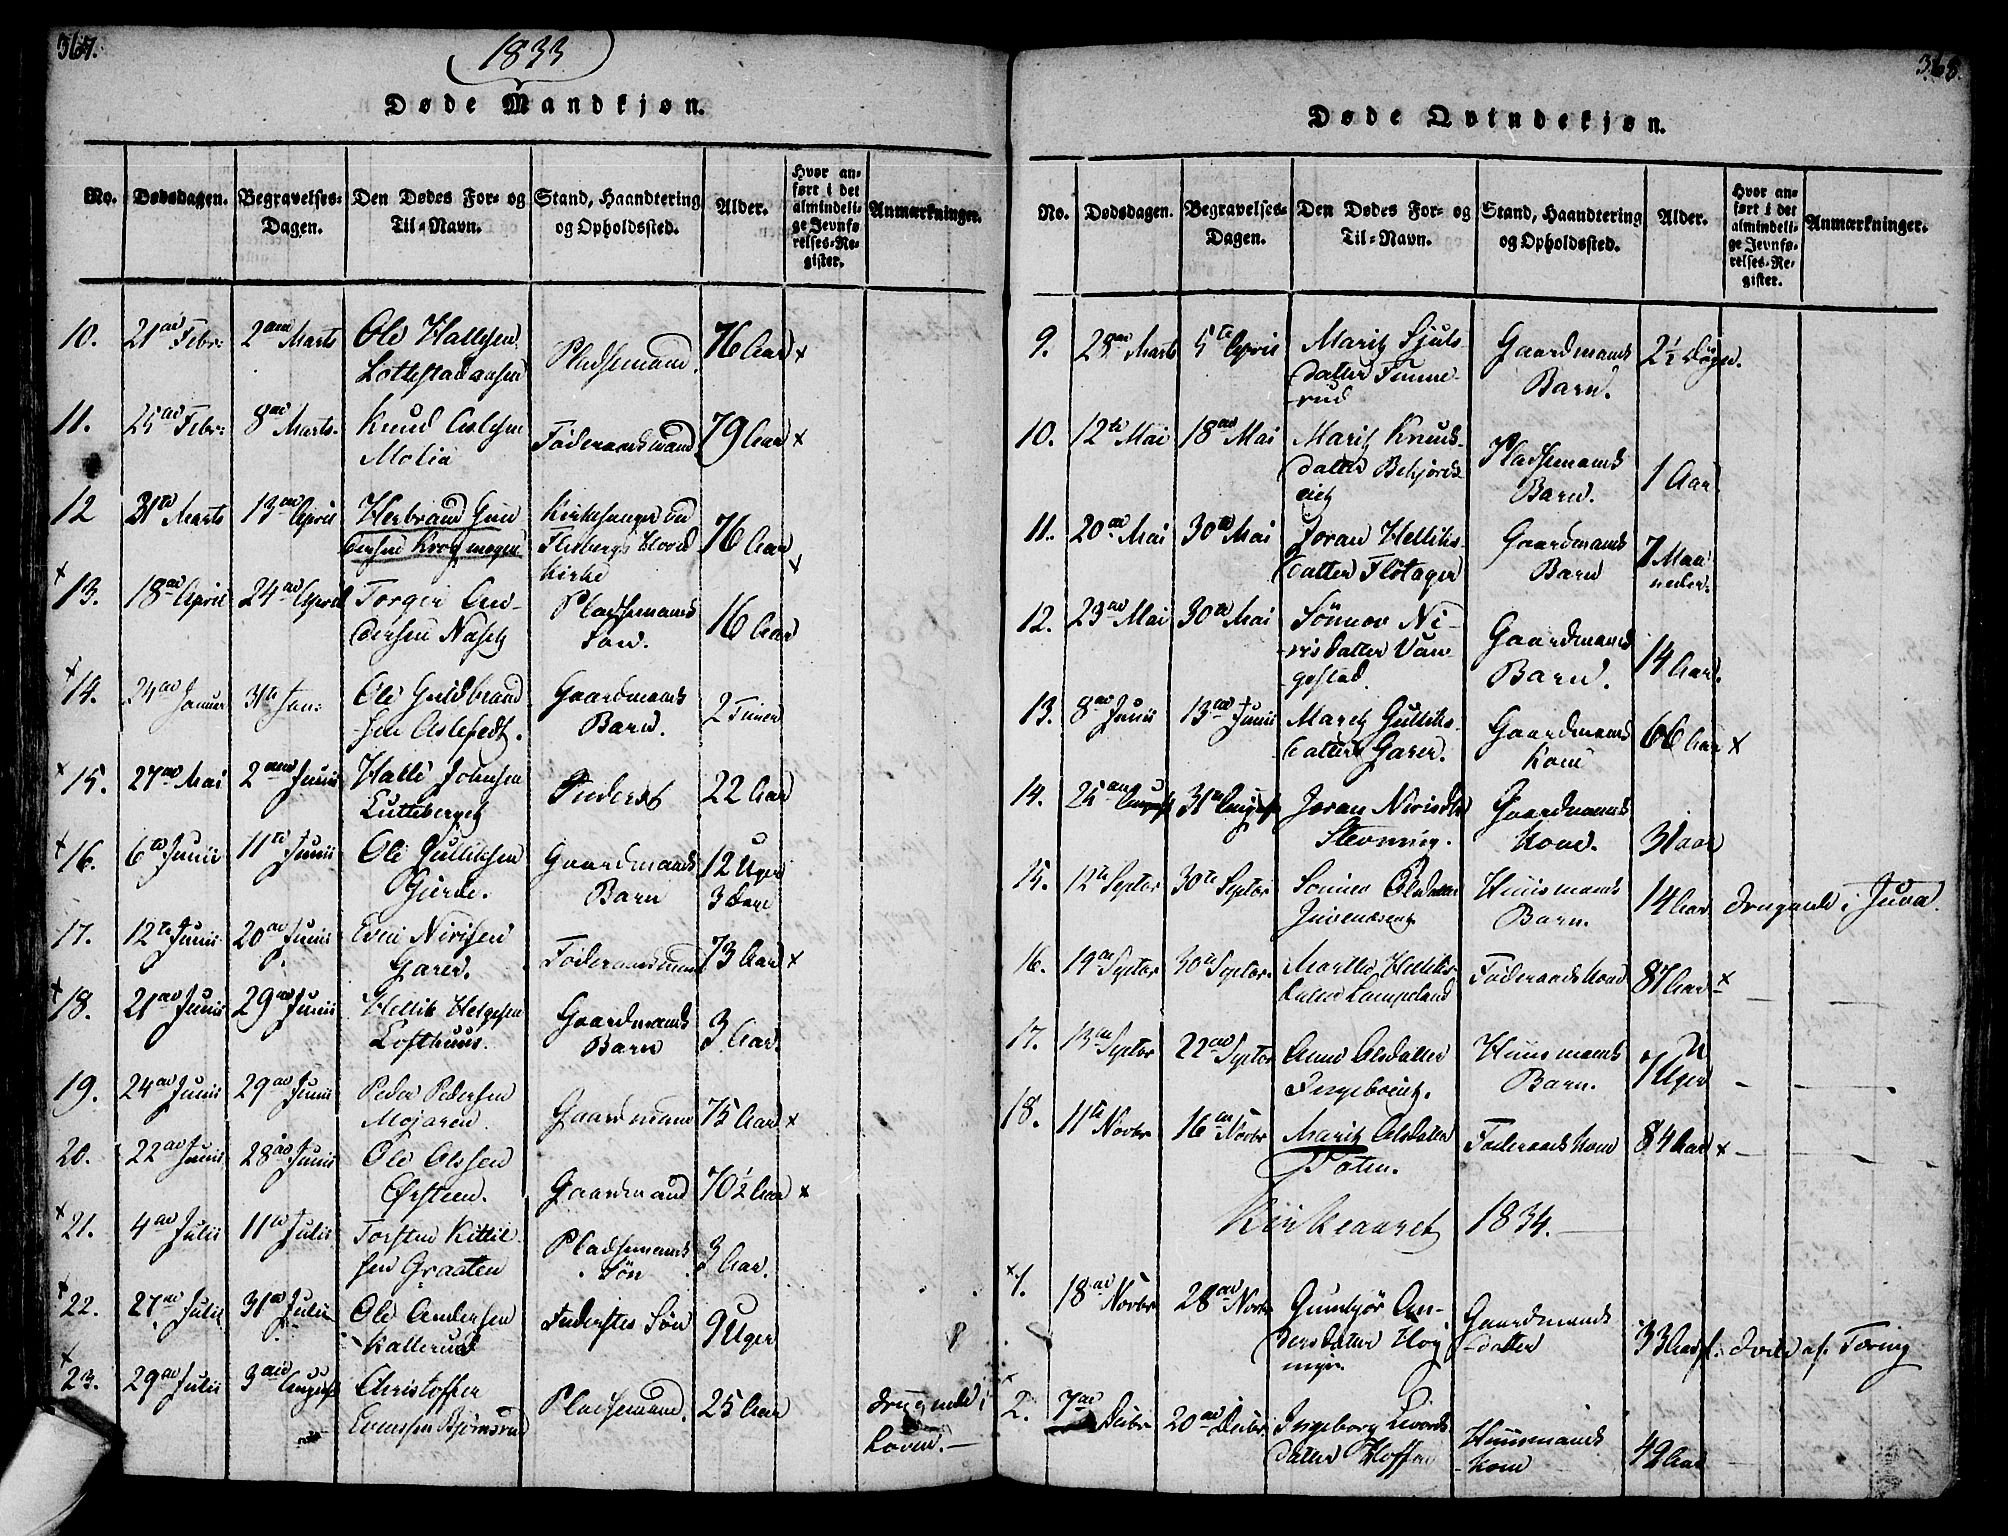 367.
1833
Døde Mandkjøn.
No. Dødsdagen. Begravelses-Dagen. Den Dødes For- og Til-Navn. Stand, Haandtering og Opholdssted. Alder. Hvor anført i det almindelige Jevnførelses-Register. Anmærkninger.
10. 21de Febr: 2den Marts Ole Hallesen Pladsemand. 76 Aar x
11. 25de Febr: 8de Marts. Knud Aslesen Molia Føderaadsmand 79 Aar x
12 31te Marts 13de April Herbrand Gundersen Krogmogen Kirkesanger ved Flesbergs Hoved Kirke 76 Aar x
x 13. 18de April 24de April Torger Andersen Pladsemands Søn. 16 Aar
x 14. 24de Januar 31te Jan: Ole Guldbrandsen Gaardmands Barn. 2 Timer
x 15. 27de Mai 2den Junii Halle Johnsen Inderst 22 Aar
x 16. 6te Junii 11te Junii Ole Gulliksen Gjerde. Gaardmands Barn 12 Uger 3 Dage
17. 12te Junii 20de Junii Even Nirisen Garer. Føderaadsmand 73 Aar x
x 18. 21de Junii 29de Junii Hellik Helgesen Lofthuus. Gaardmands Barn 3 Aar.
19. 24de Junii 29de Junii Peder Pedersen Mojaren. Gaardmand 75 Aar x
20. 22de Junii 28de Junii Ole Olssen Ørsteen. Gaardmand 70 1/2 Aar x
x 21. 4de Julii 11te Julii Torsten Kittilsen Graaten Pladsemands Søn 3 Aar.
x 22. 27de Julii 31te Julii Ole Andersen Kallerud Inderstes Søn 9 Uger
x 23. 29de Julii 3die August Christoffer Evensen Pladsemand. 25 Aar druknede i Loven. —
368.
Døde Qvindekjøn.
No. Dødsdagen. Begravelses-Dagen. Den Dødes For- og Til-Navn. Stand, Haandtering og Opholdssted. Alder. Hvor anført i det almindelige Jevnførelses-Register. Anmærkninger.
9. 28de Marts 5te April Marit Sjulsdatter Gaardmands Barn. 2 1/2 Døgn.
10. 12te Mai 18de Mai Marit Knudsdatter Pladsemands Barn. 1 Aar.
11. 20de Mai 30te Mai Joran Helliksdatter Flotager Gaardmands Barn 7 Maaneder.
12. 23de Mai 30te Mai Sønnov Nirisdatter Vangestad Gaardmands Barn. 14 Aar.
13. 8de Junii 13de Junii Marit Gulliksdatter Garer. Gaardmands Kone 66 Aar x
14. 25de August 31te August Joran Nirisdtr Stevning. Gaardmands Kone. 31 Aar
15. 12te Septbr 30te Septbr Sønnev Olsdatter Huusmands Barn. 14 Aar druknede i Juva.
16. 19de Septbr 30te Septbr. Marthe Helliksdatter Lampeland Føderaadskone 87 Aar x
17. 13de Septbr 22de Septbr Anne Olsdatter Huusmands Barn. 7 Uger
18. 11te Novbr 16de Novbr Marit Olsdatter Toten. Føderaadskone 84 Aar x
Kirkeaaret 1834. —
x 1. 18de Novbr 28de Novbr Gunbjør Andersdatter Gaardmandsdatter 33 Aar døde af Tæring
x 2. 7de Decbr 20de Decbr. Ingeborg Sivertsdatter Huusmands Kone 49 Aar